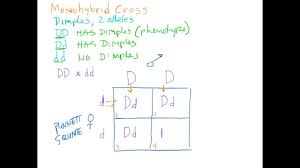 Monohybrid Cross
Dimples, 2 alleles
DD HAS DIMPLES (phenotype)
Dd HAS DIMPLES
dd NO DIMPLES
DD x dd
D D
d Dd Dd
1 2
d Dd
3 4
PUNNETT
SQUARE